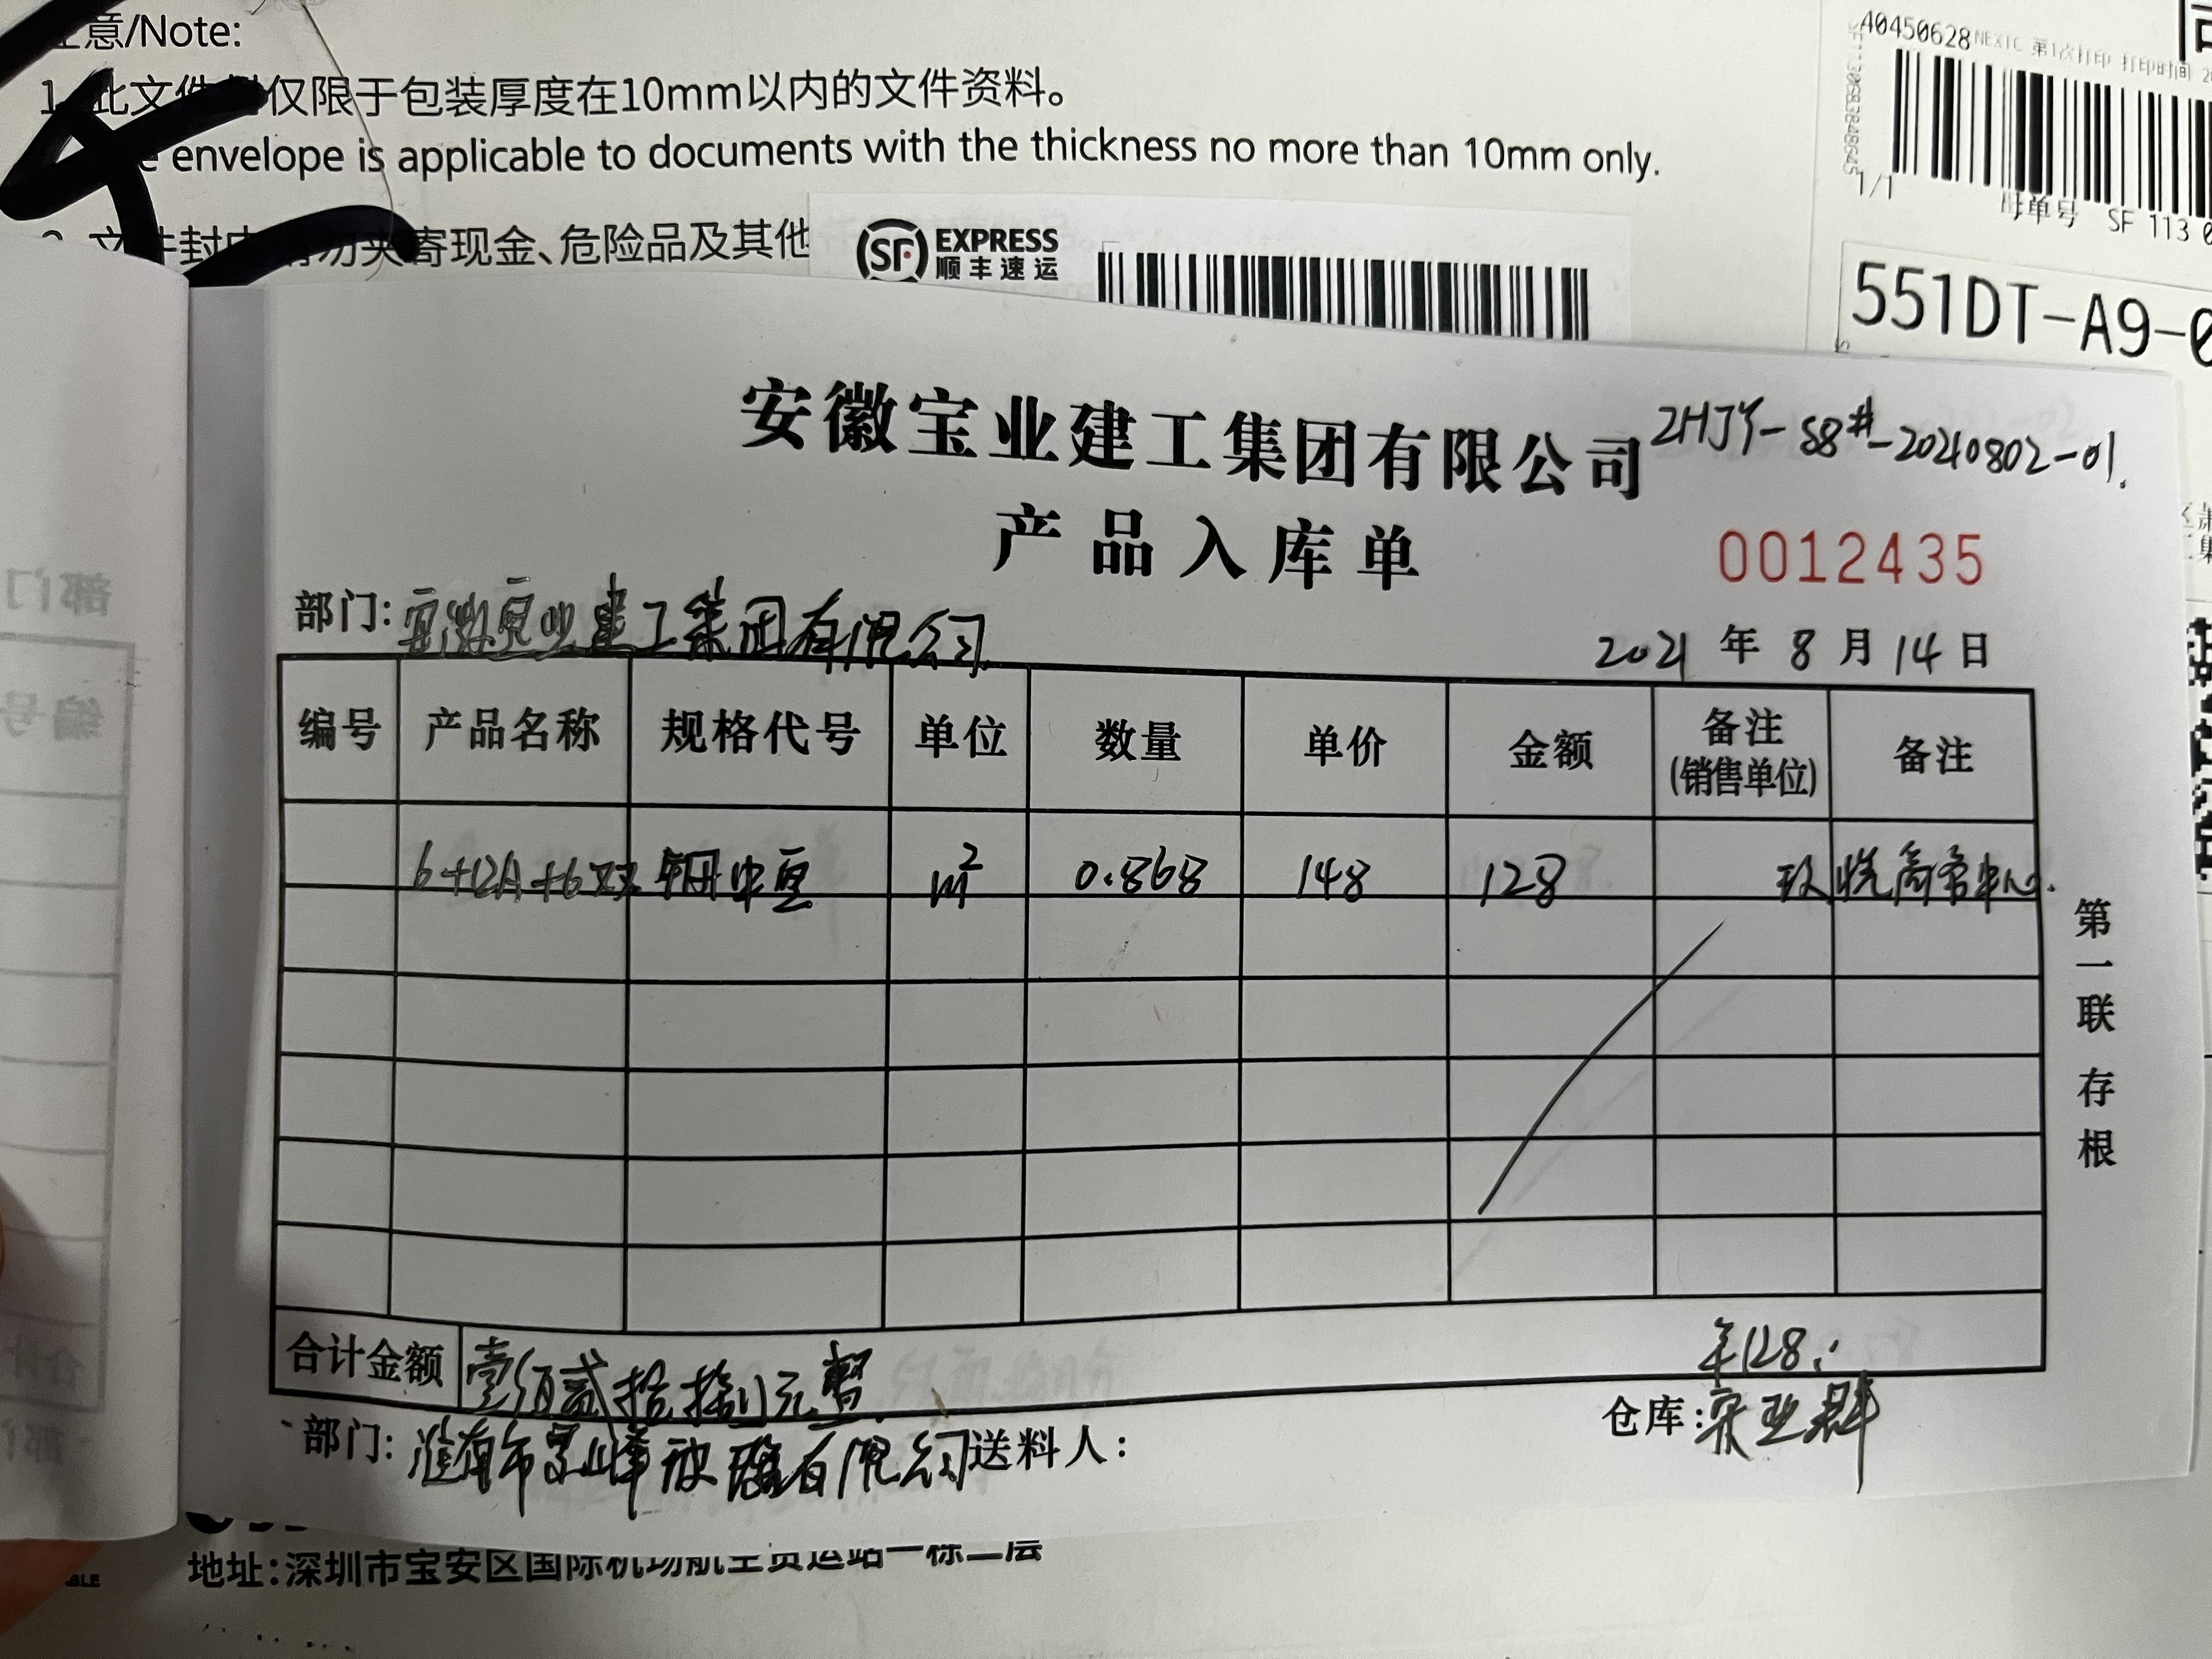 注意/Note:
1. 此文件封仅限于包装厚度在10mm以内的文件资料。
envelope is applicable to documents with the thickness no more than 10mm only.
文件封内请勿夹寄现金、危险品及其他
SF EXPRESS
顺丰速运
40450628
第1次打印 打印时间
1/1
母单号 SF 113 0
551DT-A9-0
安徽宝业建工集团有限公司 ZHJY-S8#-20210802-01.
产品入库单
0012435
部门: 安徽宝业建工集团有限公司
2021 年 8 月 14 日
编号 产品名称 规格代号 单位 数量 单价 金额 备注(销售单位) 备注
6+12A+6双 钢中空 m² 0.868 148 128 玖悦商务中心.
第一联 存根
合计金额 壹佰贰拾捌元整 ¥128.
部门: 淮南市 玻璃有限公司 送料人: 仓库:
地址:深圳市宝安区国际机场航空货运站一栋二层